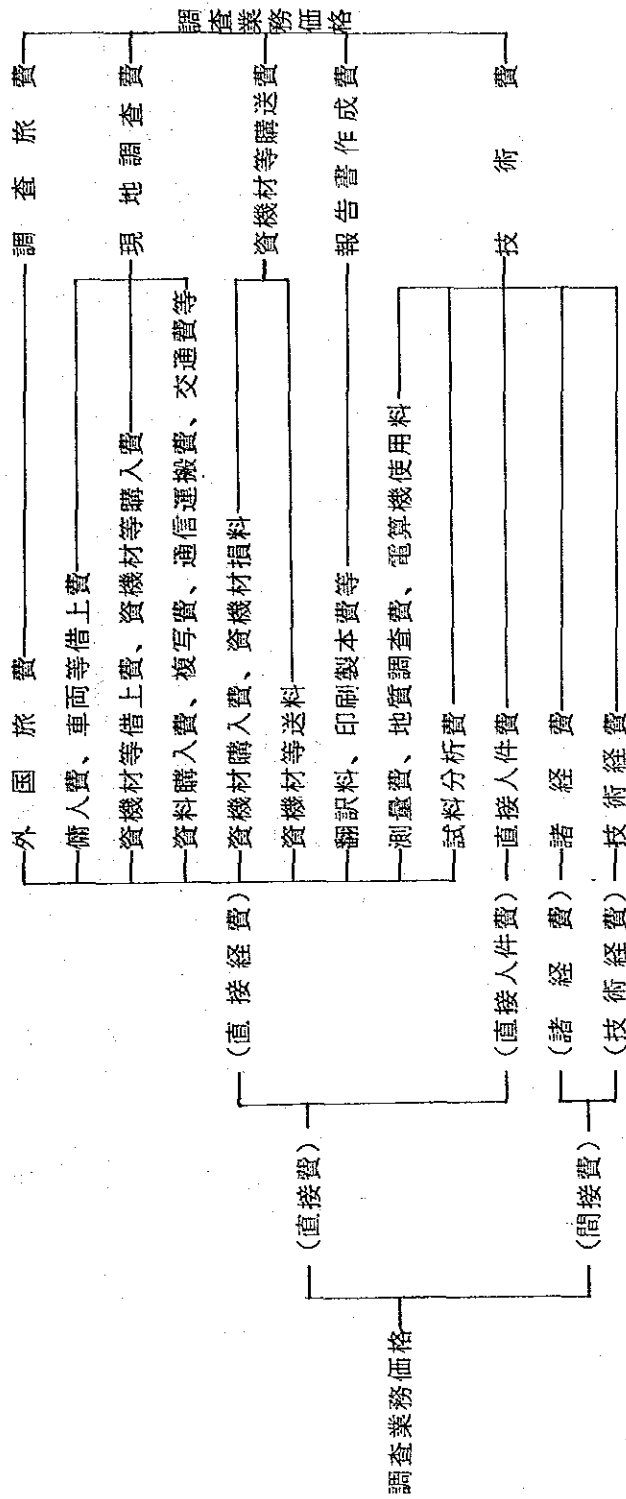 調査業務価格
(直接費)
(間接費)
(直接経費)
(直接人件費)
(諸経費)
(技術経費)
外国旅費
傭人費、車両等借上費
資機材等借上費、資機材等購入費
資料購入費、複写費、通信運搬費、交通費等
資機材購入費、資機材損料
資機材等送料
翻訳料、印刷製本費等
測量費、地質調査費、電算機使用料
試料分析費
直接人件費
諸経費
技術経費
調査旅費
現地調査費
資機材等購送費
報告書作成費
技術費
調査業務価格